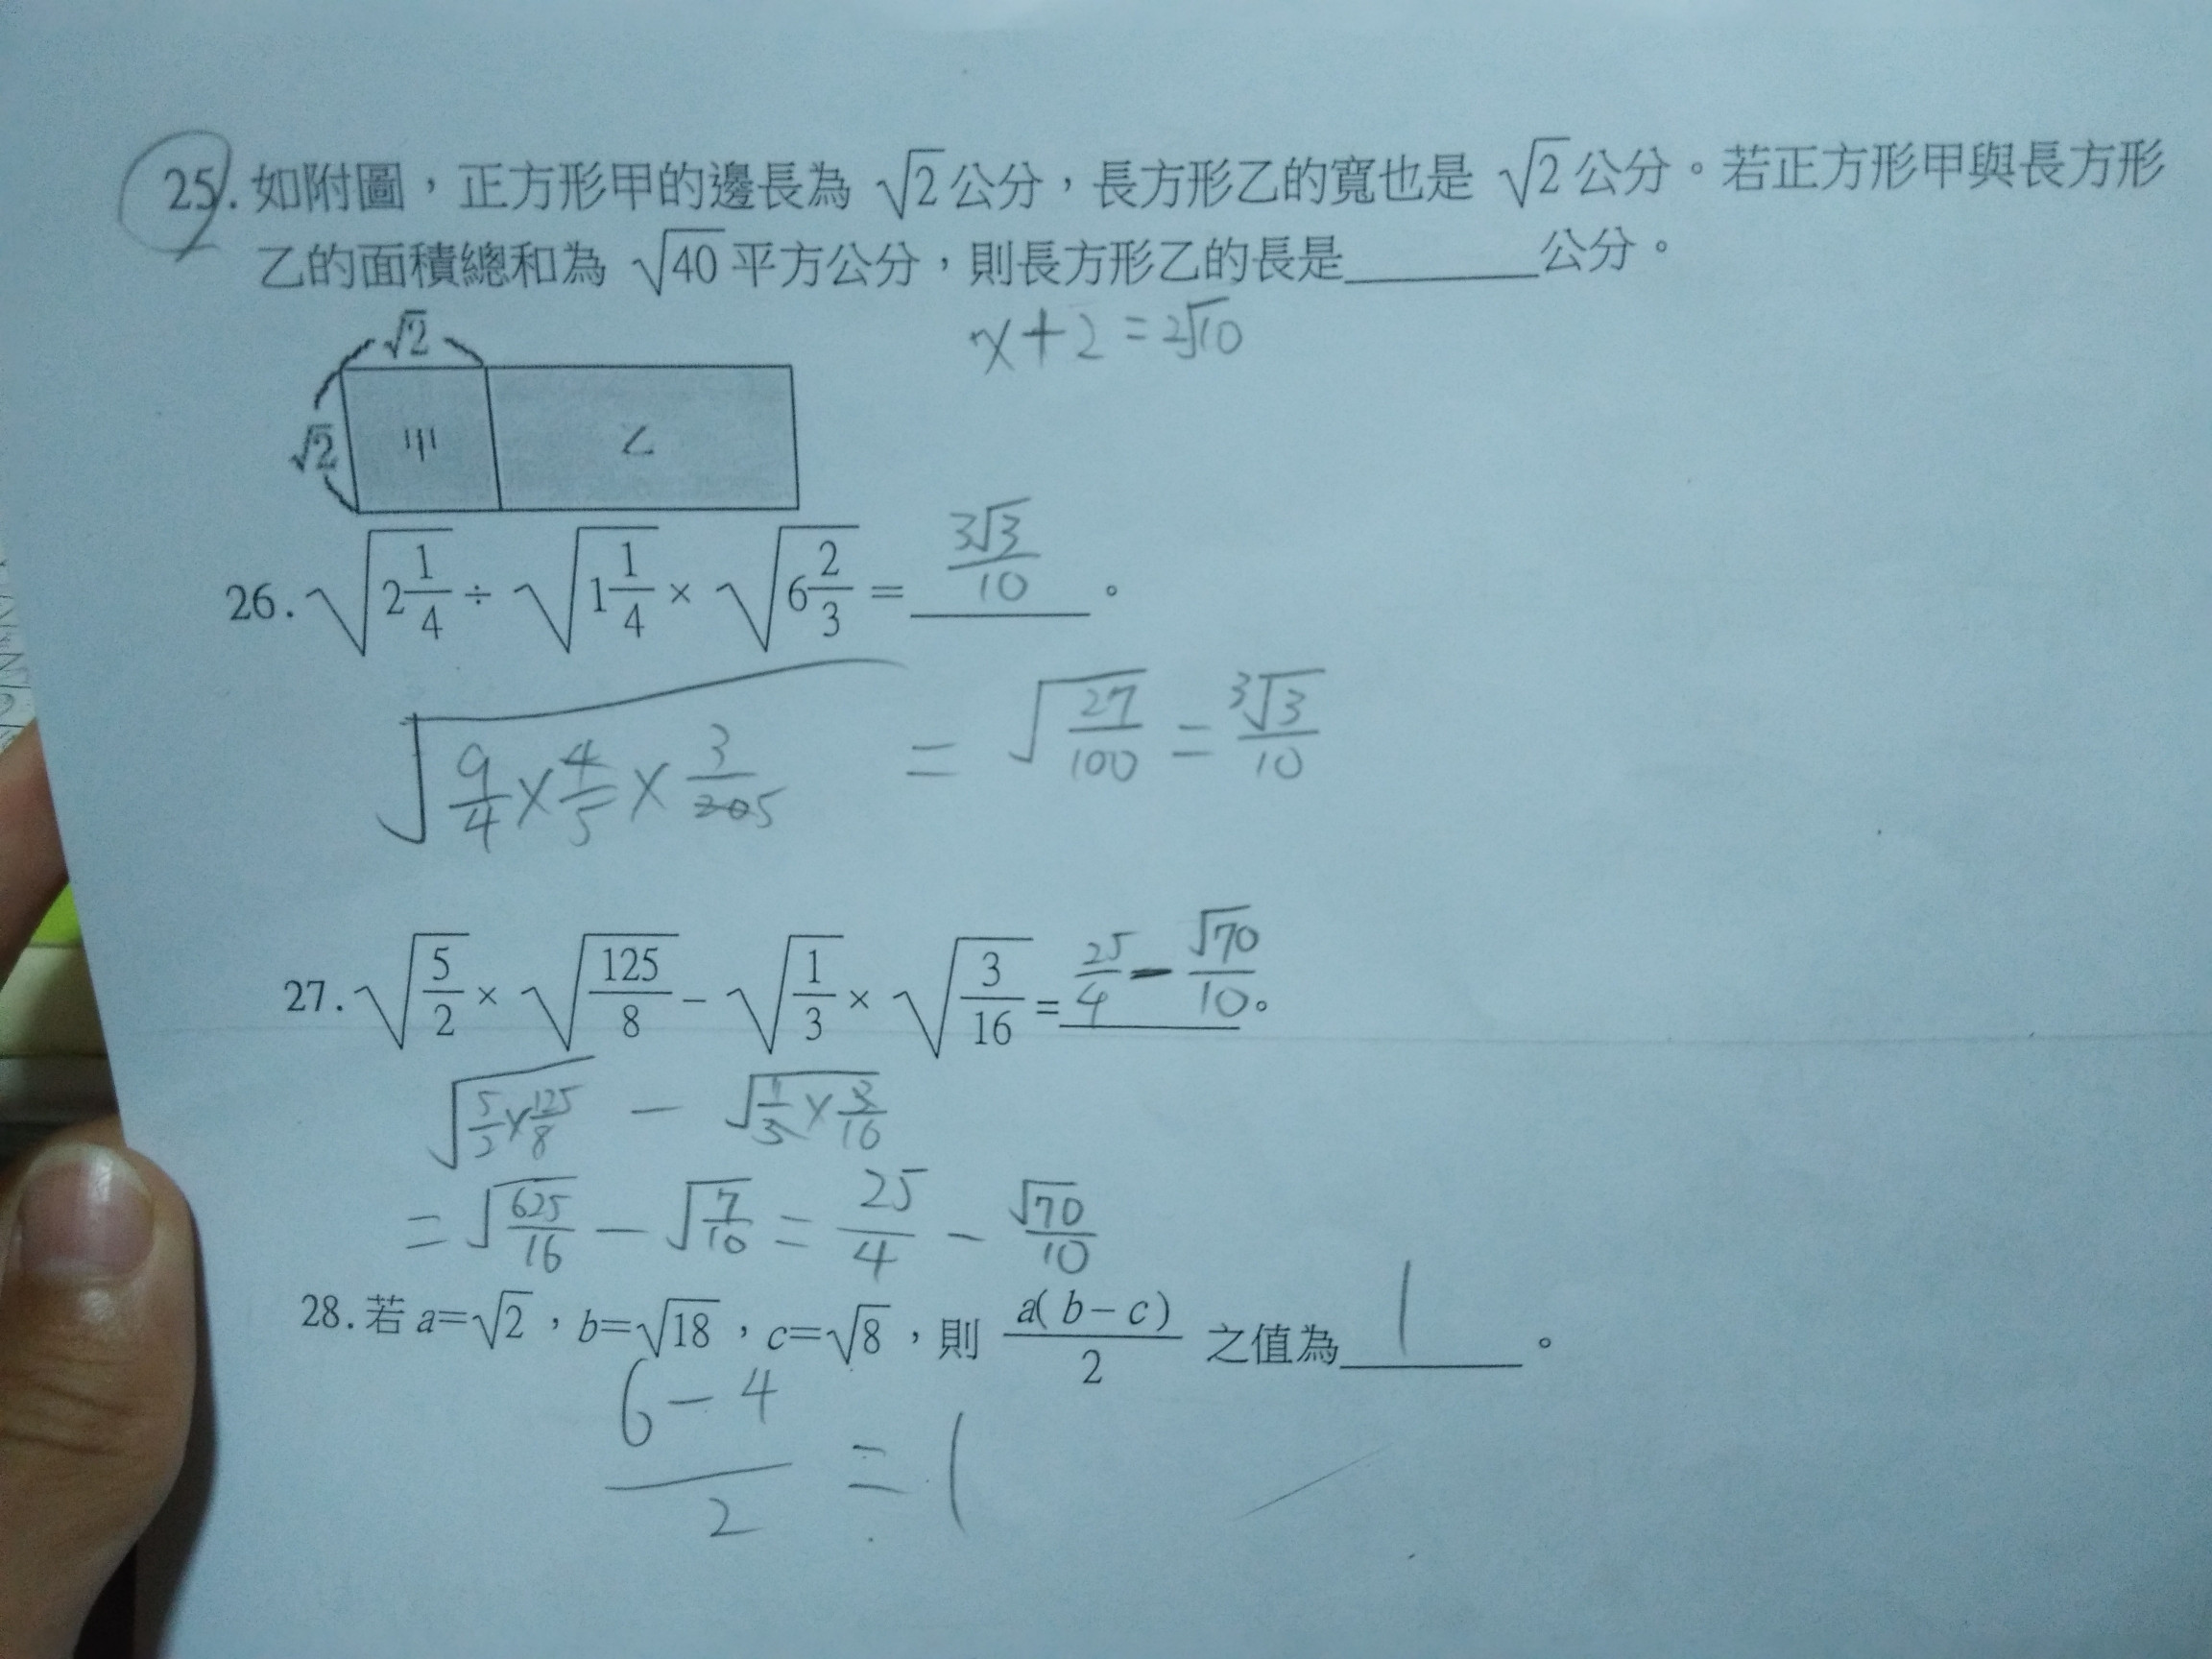 25. 如附圖，正方形甲的邊長為 √2 公分，長方形乙的寬也是 √2 公分。若正方形甲與長方形
乙的面積總和為 √40 平方公分，則長方形乙的長是______公分。
x+2=2√10
√2
√2 甲 乙
26. √(2 1/4) ÷ √(1 1/4) × √(6 2/3) = 3√3/10 。
√(9/4 × 4/5 × 3/5) = √(27/100) = 3√3/10
27. √(5/2) × √(125/8) − √(1/3) × √(3/16) = 25/4 − √70/10 。
√(5/2 × 125/8) − √(1/3 × 3/16)
= √(625/16) − √(7/10) = 25/4 − √70/10
28. 若 a=√2，b=√18，c=√8，則 a(b−c)/2 之值為 1 。
(6−4)/2 = 1